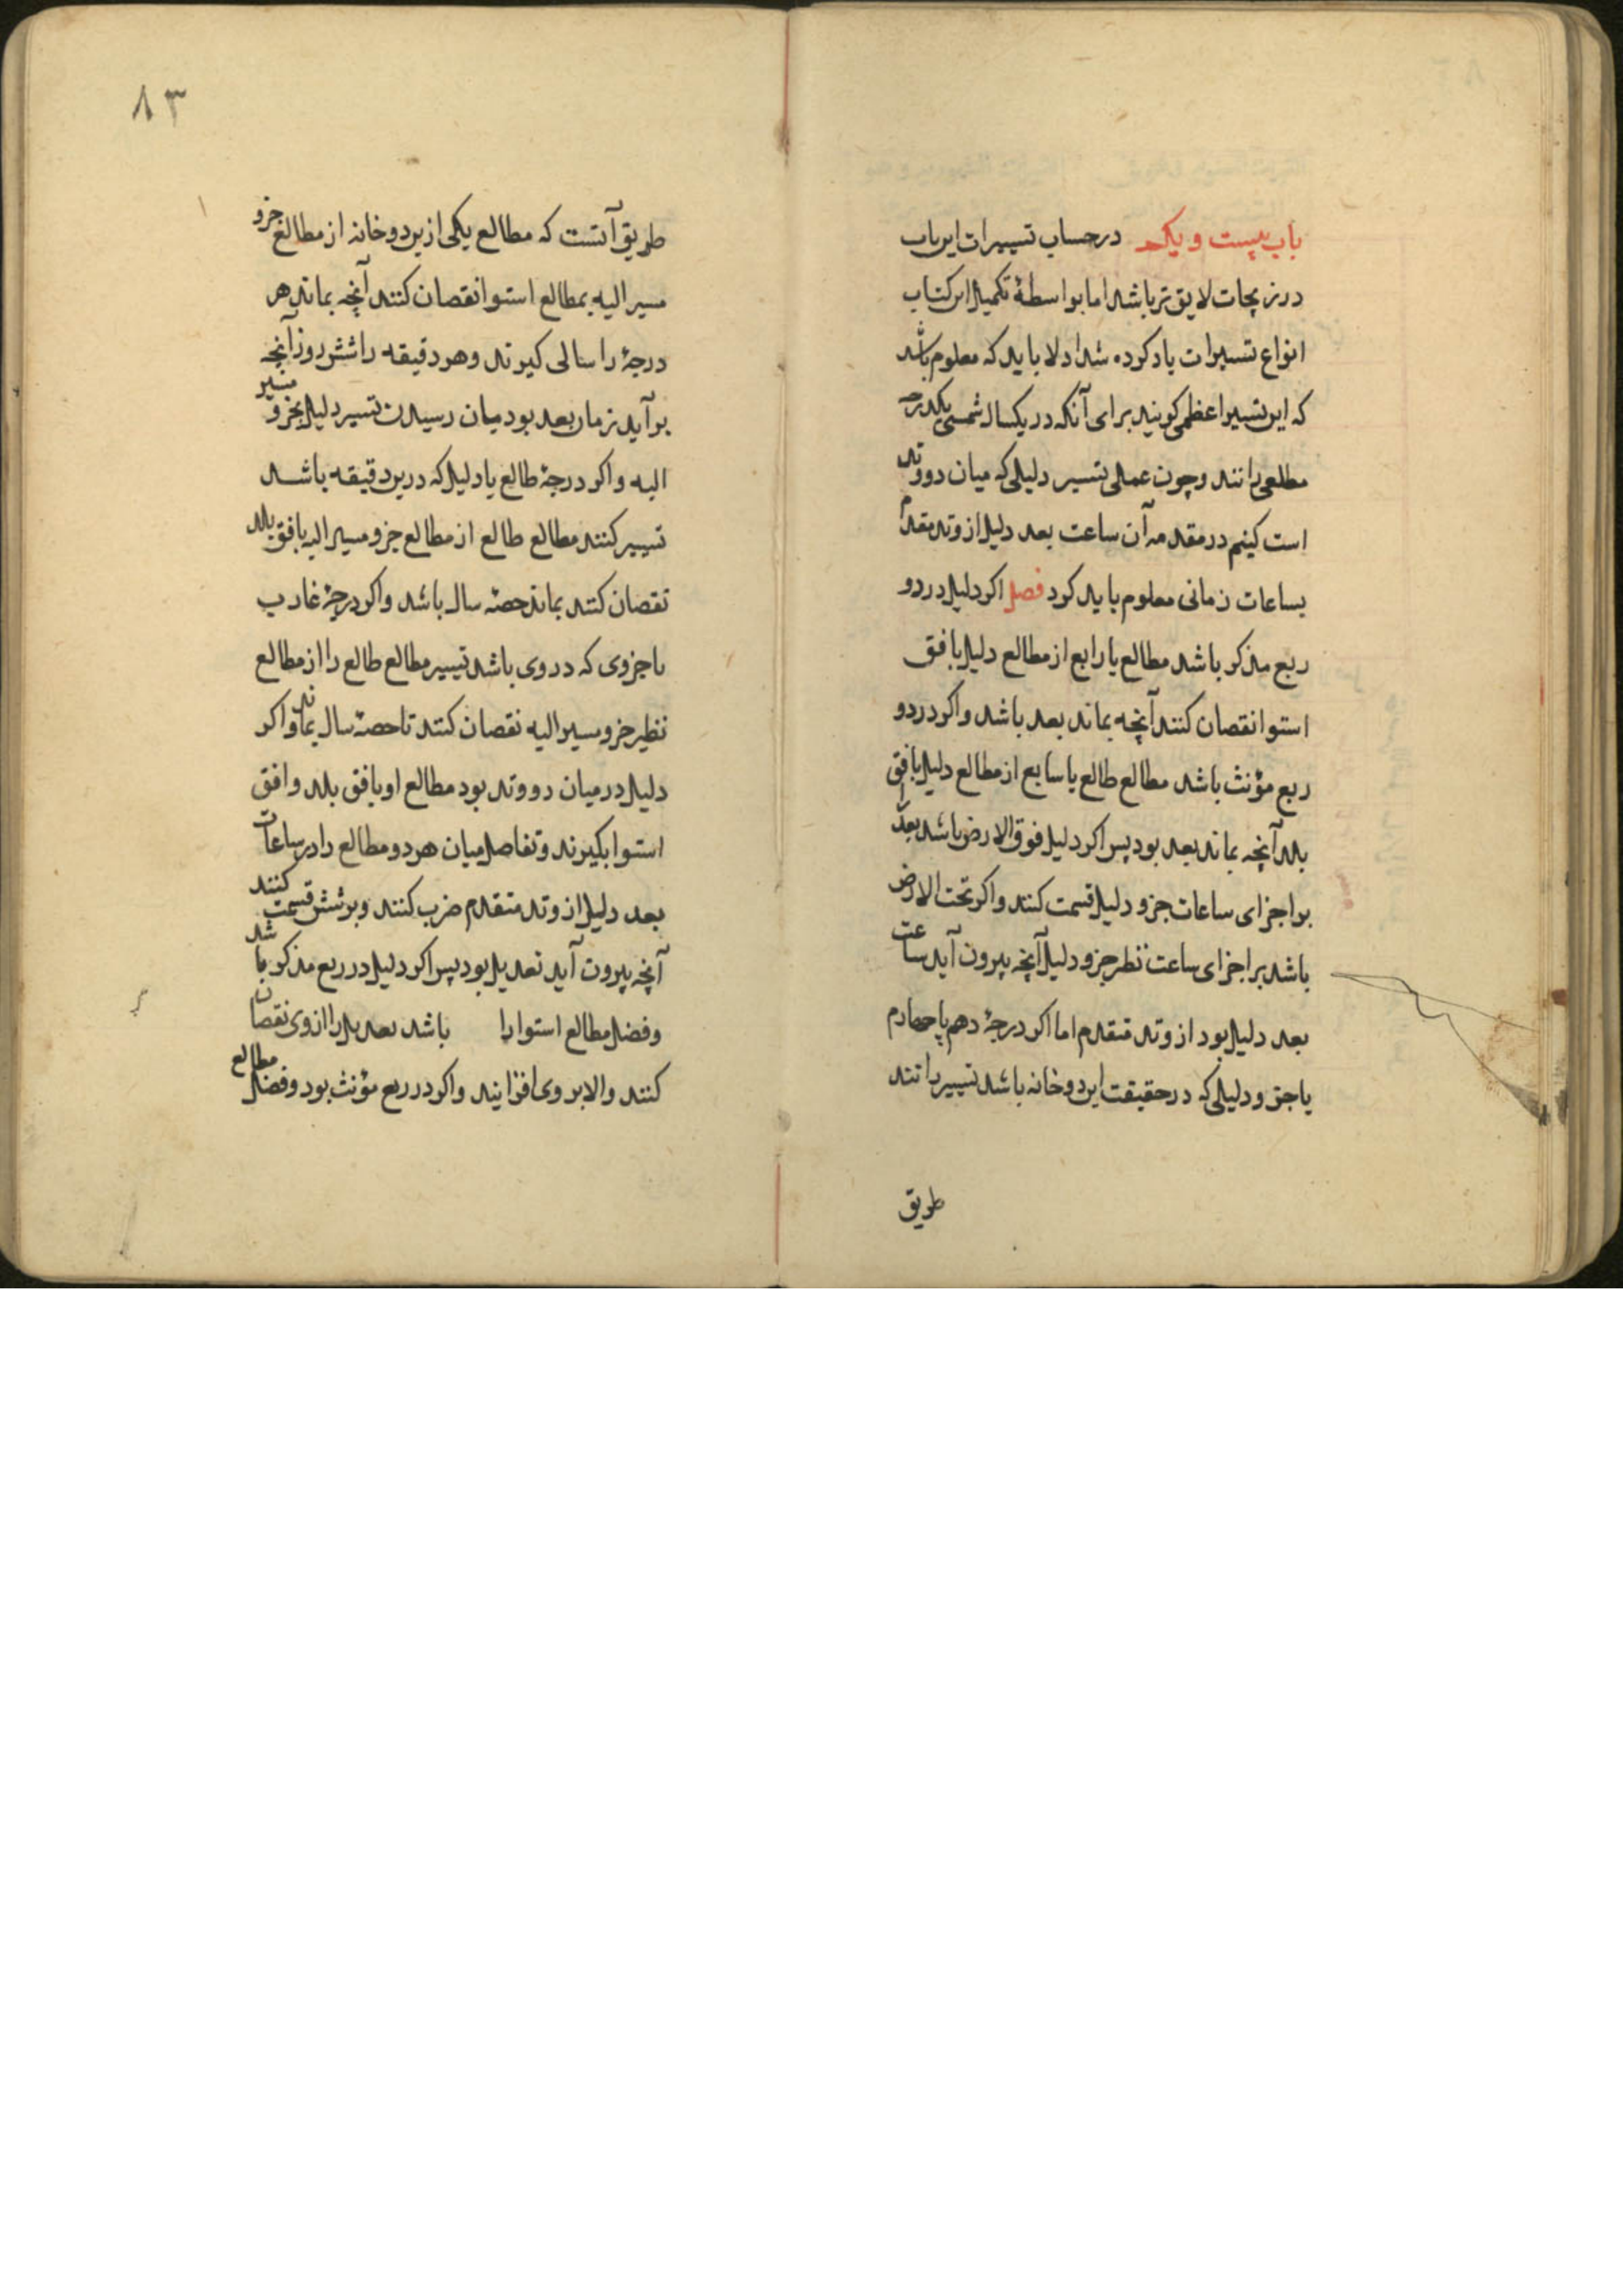 باب بیست و یک در حساب تسییرات این باب
در زیجات لایق‌تر باشد اما بواسطهٔ تکمیل این کتاب
انواع تسییرات یاد کرده شد اولا باید که معلوم باشد
که این تسییر اعظمی کویند برای آنکه در یکسال شمسی یکدرجه
مطلعی رانند و چون عملی تسییر دلیلی که میان دو وتد
است کنیم در مقدمه آن ساعت بعد دلیل از وتد مقدم
بساعات زمانی معلوم باید کرد فصل اکر دلیل در دو
ربع مذکر باشد مطالع یا رابع از مطالع دلیل بافق
استوا نقصان کنند آنچه بماند بعد باشد و اکر در دو
ربع مؤنث باشد مطالع طالع یا سابع از مطالع دلیل بافق
بلد آنچه بماند بعد بود پس اکر دلیل فوق الارض باشد بعد را
بر اجزای ساعات جزو دلیل قسمت کنند و اکر تحت الارض
باشد بر اجزای ساعت نظیر جزو دلیل آنچه بیرون آید ساعت
بعد دلیل بود از وتد متقدم اما اکر درجهٔ دهم یا چهارم
یا جزو دلیلی که در حقیقت این دو خانه باشد تسییر رانند
طریق
۸۳
طریق آنست که مطالع یکی ازین دو خانه از مطالع جزو
مسیر الیه بمطالع استوا نقصان کنند آنچه بماند هر
درجهٔ را سالی کیرند و هر دقیقه را شش روز آنچه
بر آید زمان بعد بود میان رسیدن تسییر دلیل بجزو مسیر
الیه و اکر درجهٔ طالع یا دلیل که درین دقیقه باشد
تسییر کنند مطالع طالع از مطالع جزو مسیر الیه بافق بلد
نقصان کنند بماند حصهٔ سال باشد و اکر درجهٔ غارب
یا جزوی که در وی باشد تسییر مطالع طالع را از مطالع
نظیر جزو مسیر الیه نقصان کنند تا حصهٔ سال بماند و اکر
دلیل در میان دو وتد بود مطالع او بافق بلد و افق
استوا بکیرند و تفاصل میان هر دو مطالع را در ساعات
بعد دلیل از وتد متقدم ضرب کنند و بر شش قسمت کنند
آنچه بیرون آید تعدیل بود پس اکر دلیل در ربع مذکر باشد
و فضل مطالع استوا را باشد تعدیل را از وی نقصان
کنند و الا بر وی افزایند و اکر در ربع مؤنث بود و فضل مطالع